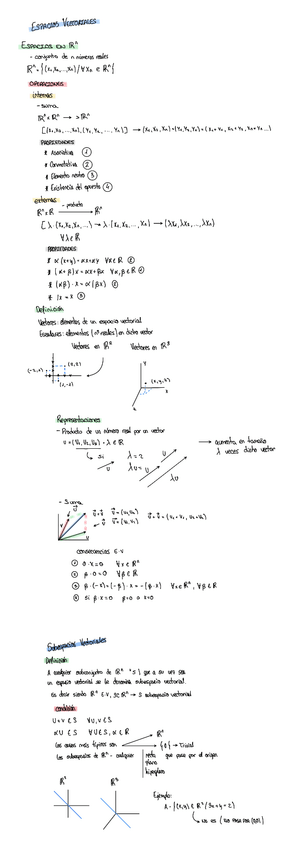 ESPACIOS VECTORIALES
ESPACIOS EN ℝⁿ
- conjunto de n números reales
ℝⁿ = {(x₁, x₂, ..., xₙ) / ∀xₙ ∈ ℝⁿ}
OPERACIONES
internas
- suma
ℝⁿ x ℝⁿ → > ℝⁿ
PROPIEDADES
* Asociativa ①
* Conmutativa ②
* Elemento neutro ③
* Existencia del opuesto ④
externas
- producto
ℝⁿ x ℝ → ℝⁿ
∀λ ∈ ℝ
PROPIEDADES
* α(x+y) = αx+αy ∀α ∈ ℝ ①
* (α+β)x = αx+βx ∀α, β ∈ ℝ ②
* (αβ)·x = α(βx) ③
* 1x = x
Definición
Vectores: elementos de un espacio vectorial
Escalares: elementos (nº reales) en dicho vector
Vectores en ℝ² Vectores en ℝ³
Representaciones
- Producto de un número real por un vector
→ aumenta en tamaño
λ veces dicho vector
Si λ = 2
U λU = U λU
- Suma
consecuencias E.V
① 0·x = 0 ∀x ∈ ℝⁿ
② β·0 = 0 ∀β ∈ ℝ
③ β·(-x) = (-β)·x = -(β·x) ∀x ∈ ℝⁿ, ∀β ∈ ℝ
④ Si β·x = 0 β = 0 o x = 0
Subespacios Vectoriales
Definición
A cualquier subconjunto de ℝⁿ "S", que a su vez sea
un espacio vectorial se le denomina subespacio vectorial.
Es decir siendo ℝⁿ E.V, S⊆ℝⁿ → S subespacio vectorial
condición
U+V ∈ S ∀U, V ∈ S
αU ∈ S ∀U ∈ S, α ∈ ℝ
Los casos más típicos son ℝⁿ
{0} → Trivial
Los subespacios de ℝⁿ - cualquier recta que pase por el origen
plano
hiperplano
ℝ² ℝ³
Ejemplo: